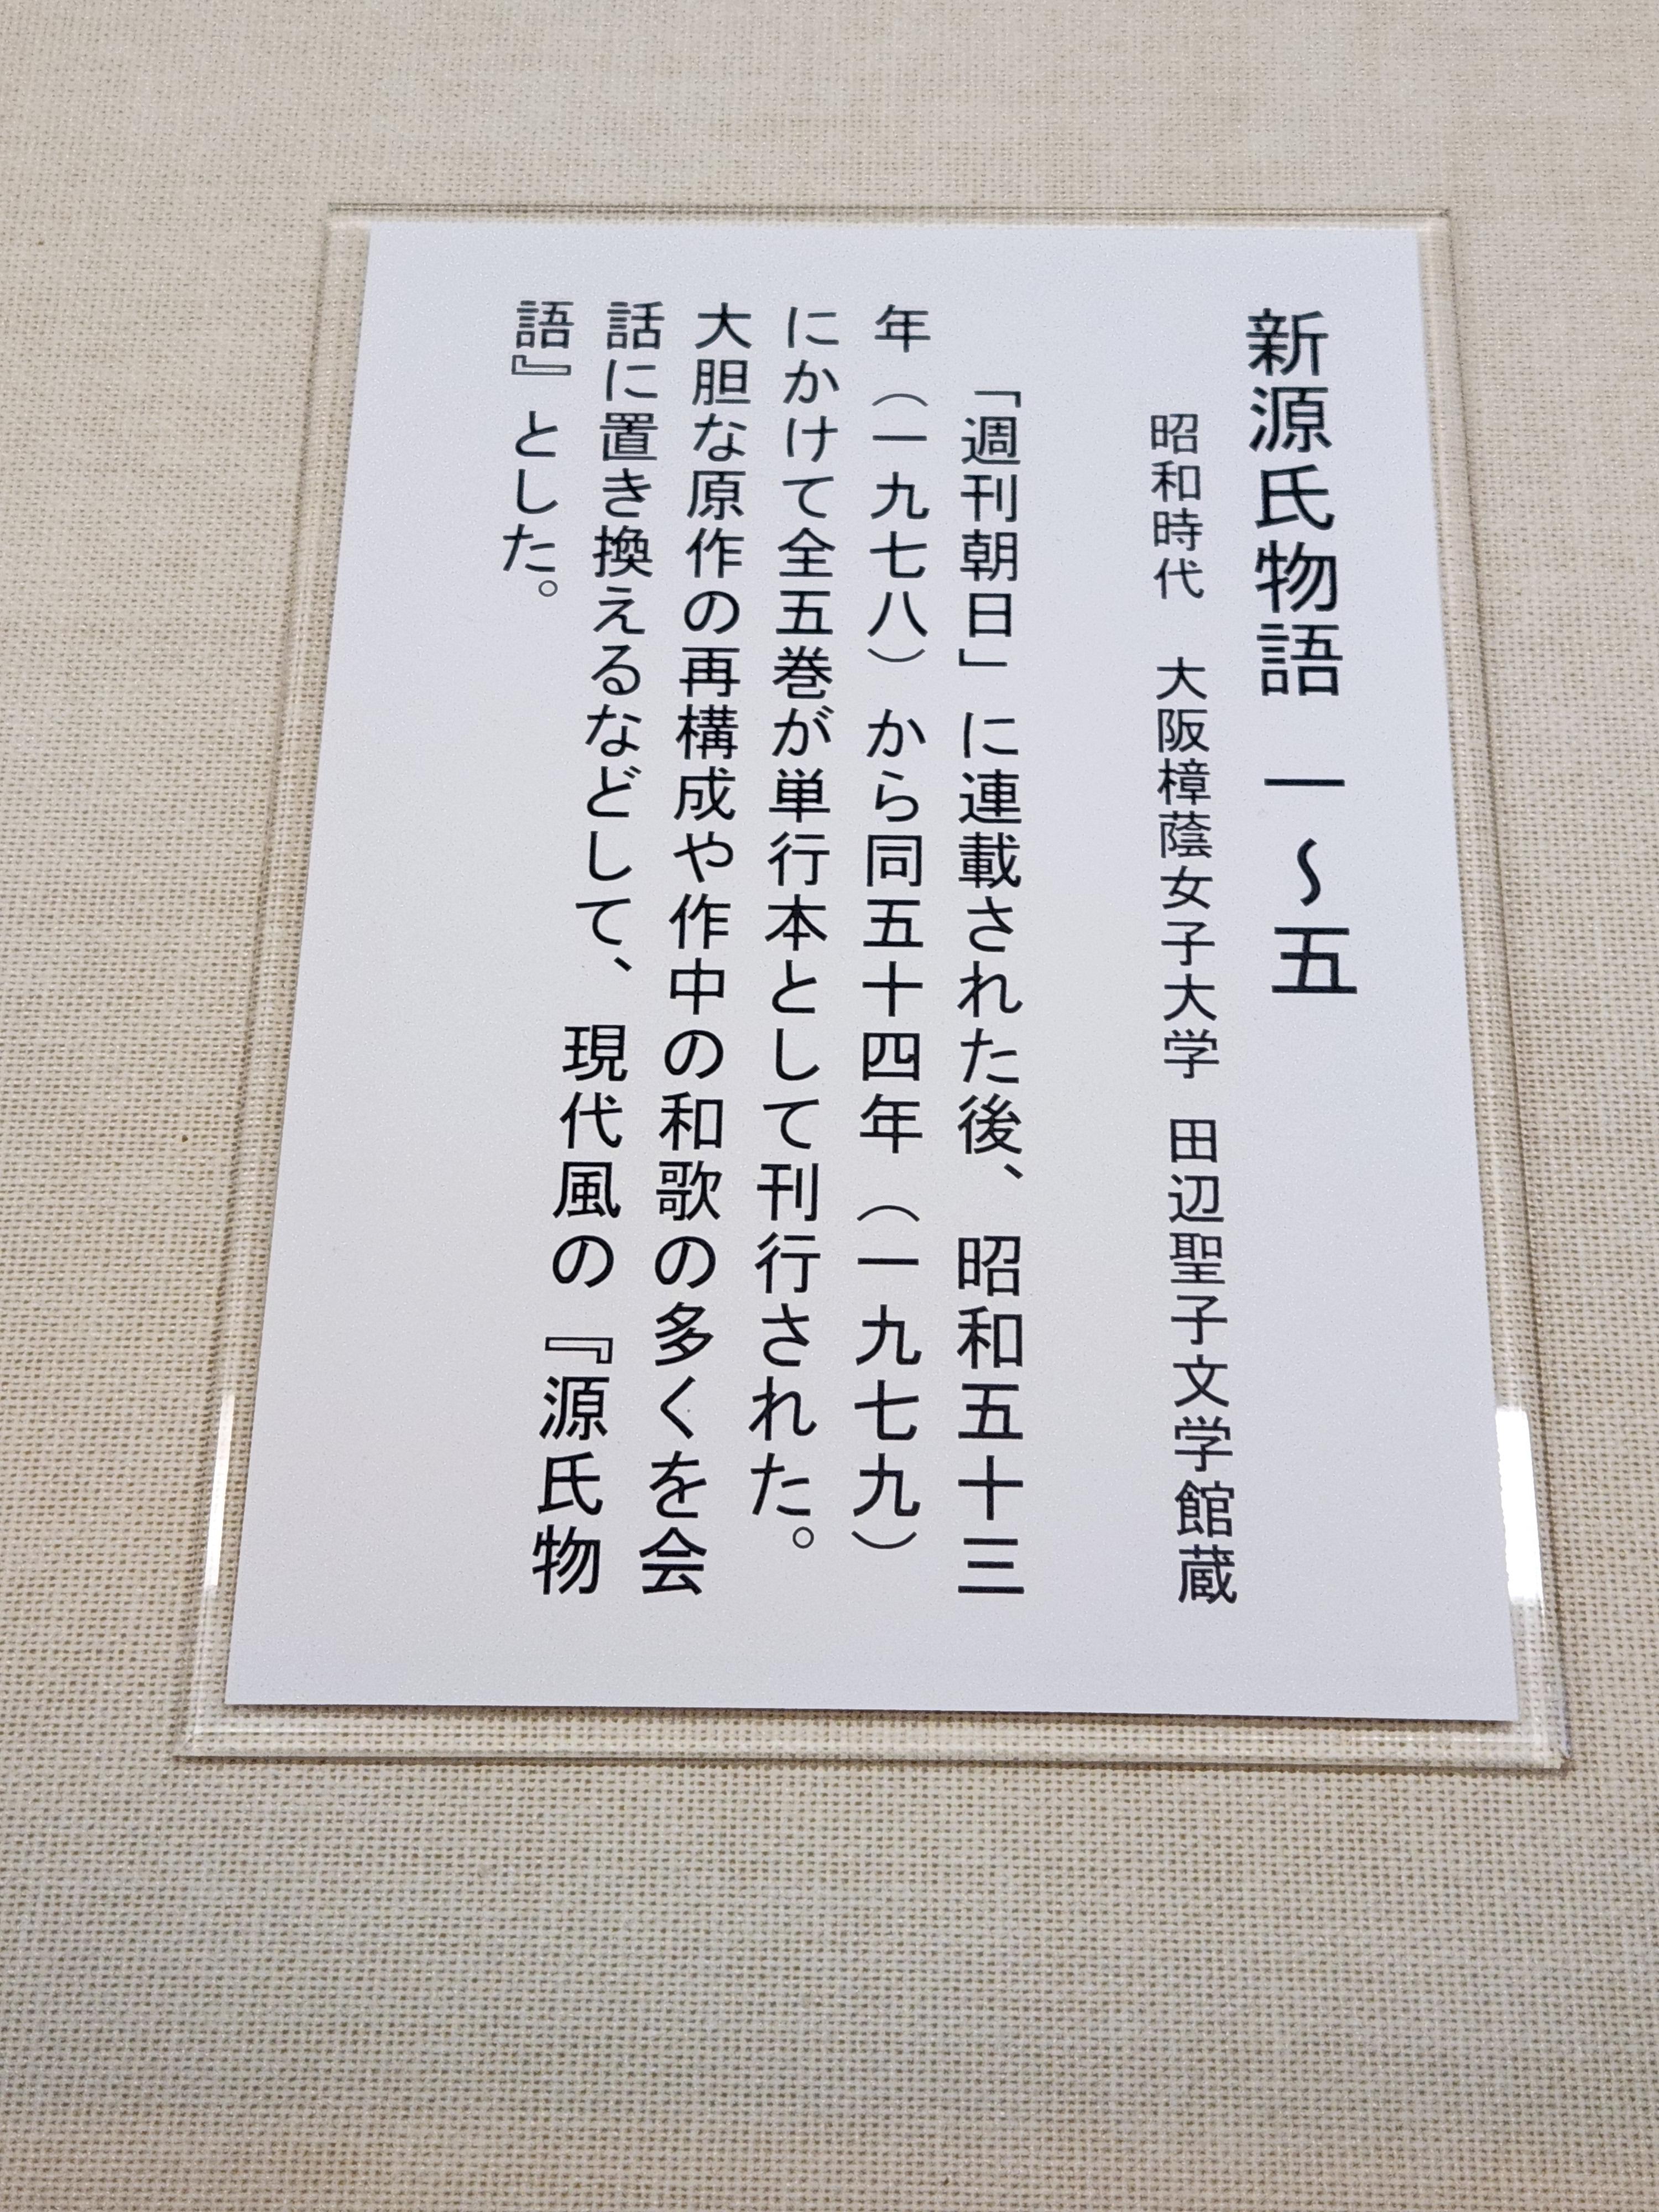 新源氏物語 一~五
昭和時代 大阪樟蔭女子大学 田辺聖子文学館蔵
「週刊朝日」に連載された後、昭和五十三
年(一九七八)から同五十四年(一九七九)
にかけて全五巻が単行本として刊行された。
大胆な原作の再構成や作中の和歌の多くを会
話に置き換えるなどして、現代風の『源氏物
語』とした。